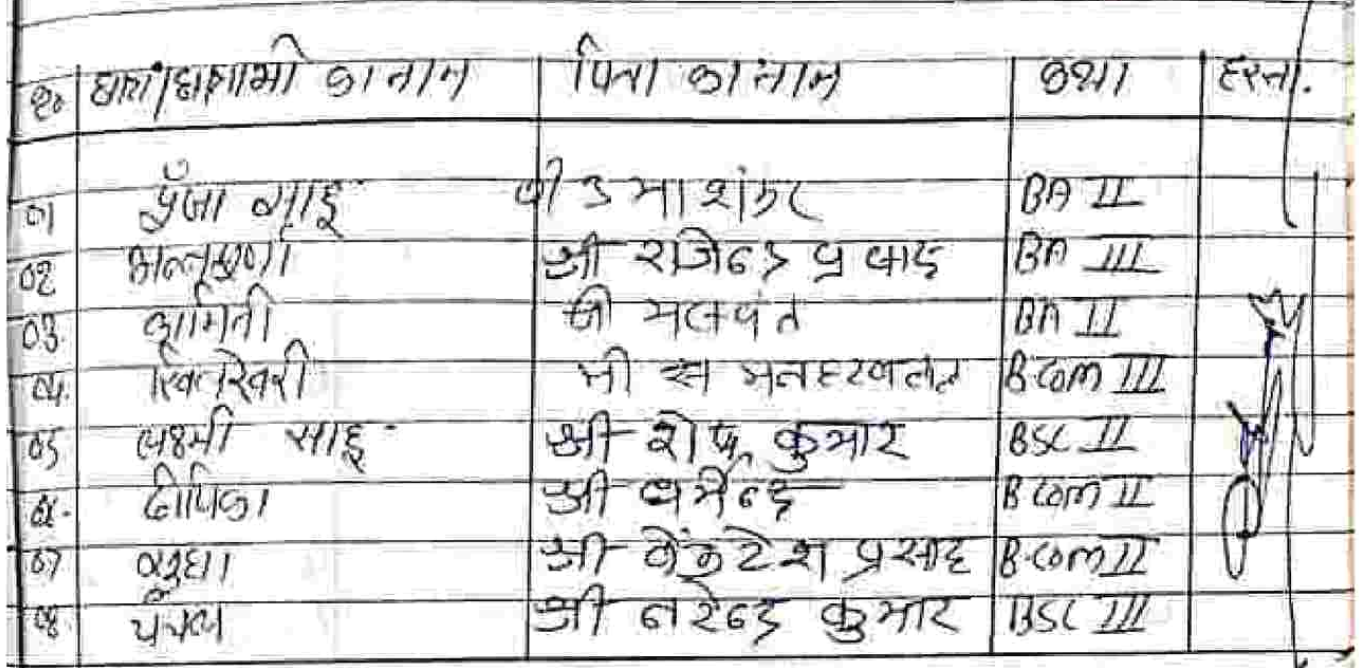 क्र० छात्र/छात्राओं का नाम पिता का नाम कक्षा हस्ता.
01 पूजा साहू श्री उमा शंकर BA II
02 अन्नपूर्णा श्री राजेन्द्र प्रसाद BA III
03. यामिनी श्री BA II
04. श्री B.com III
05 लक्ष्मी साहू श्री कुमार BSC II
06. दीपिका श्री धर्मेन्द्र B com II
07 श्री वेंकटेश प्रसाद B.com II
08. श्री नरेन्द्र कुमार BSC III